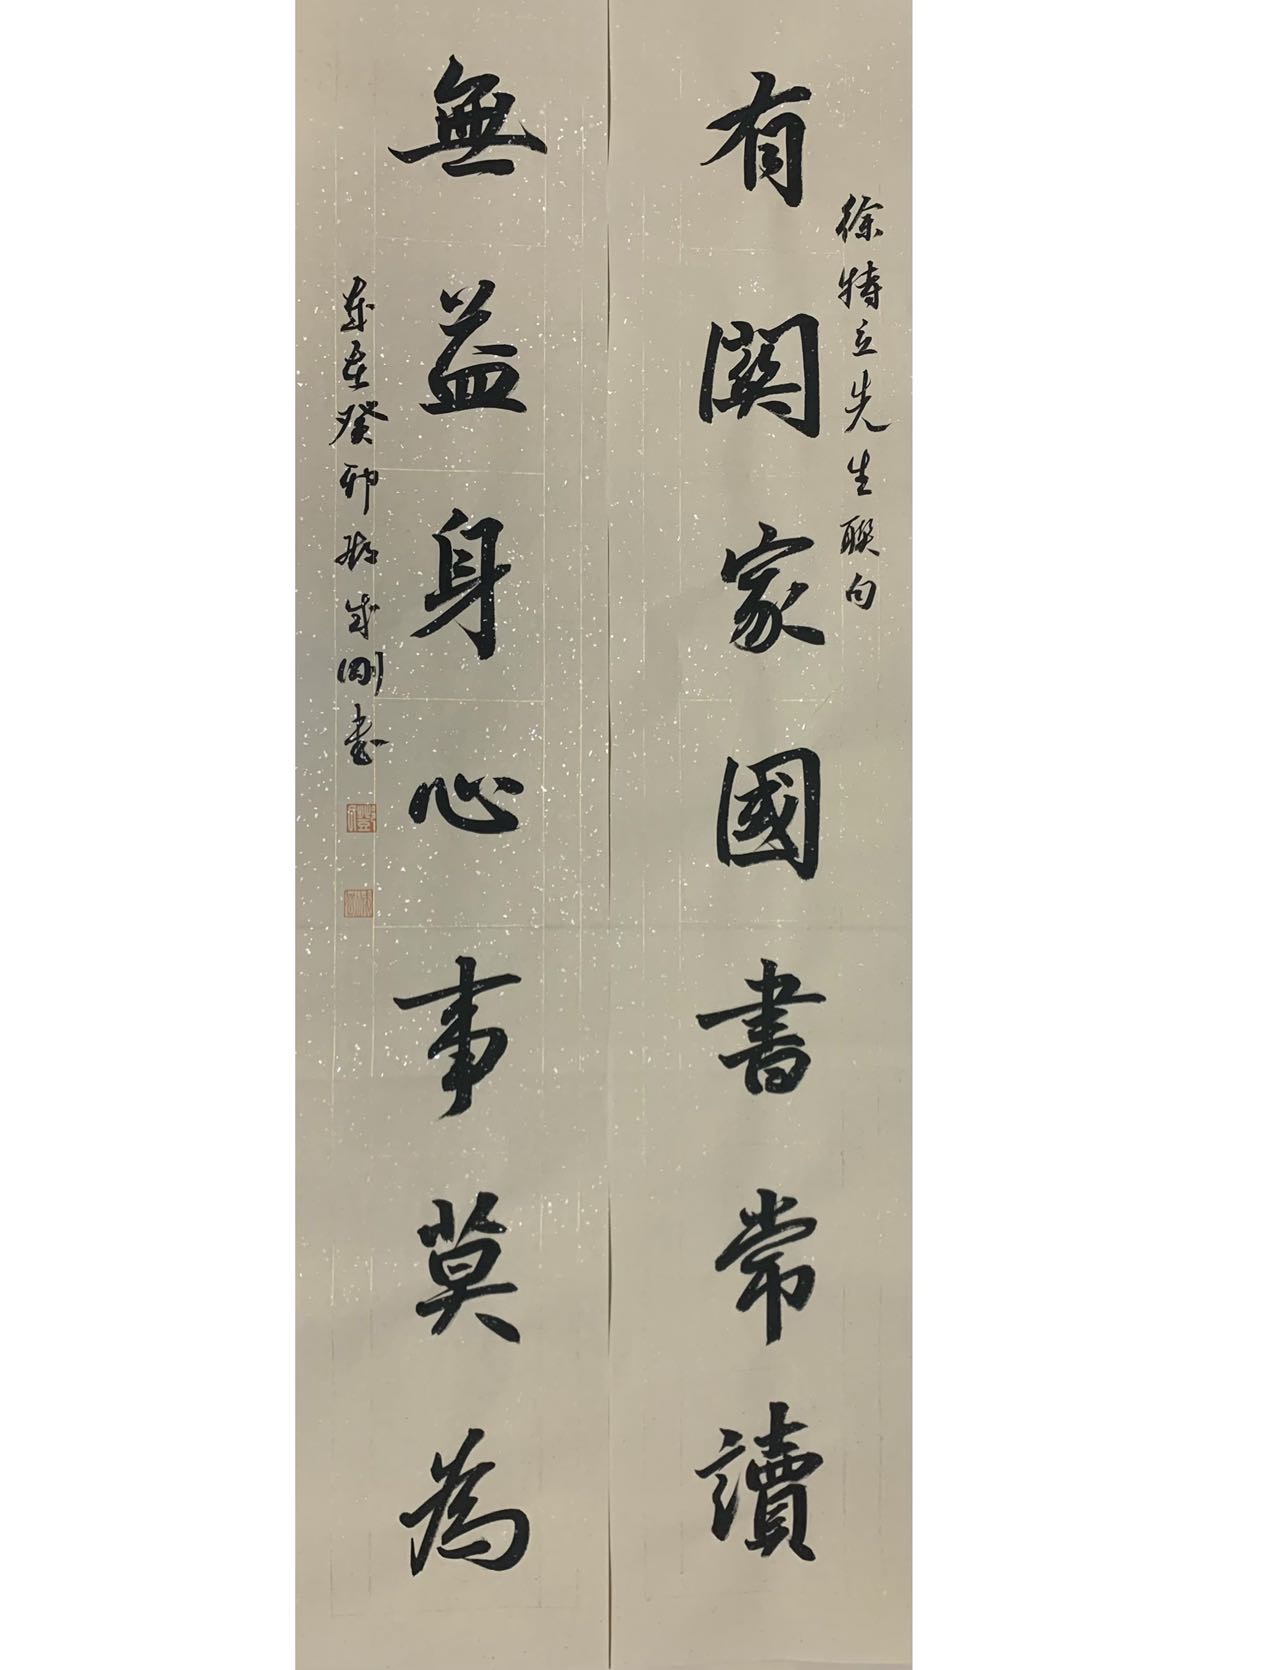 徐特立先生聯句
有關家國書常讀
無益身心事莫為
歲在癸卯鄭成剛書